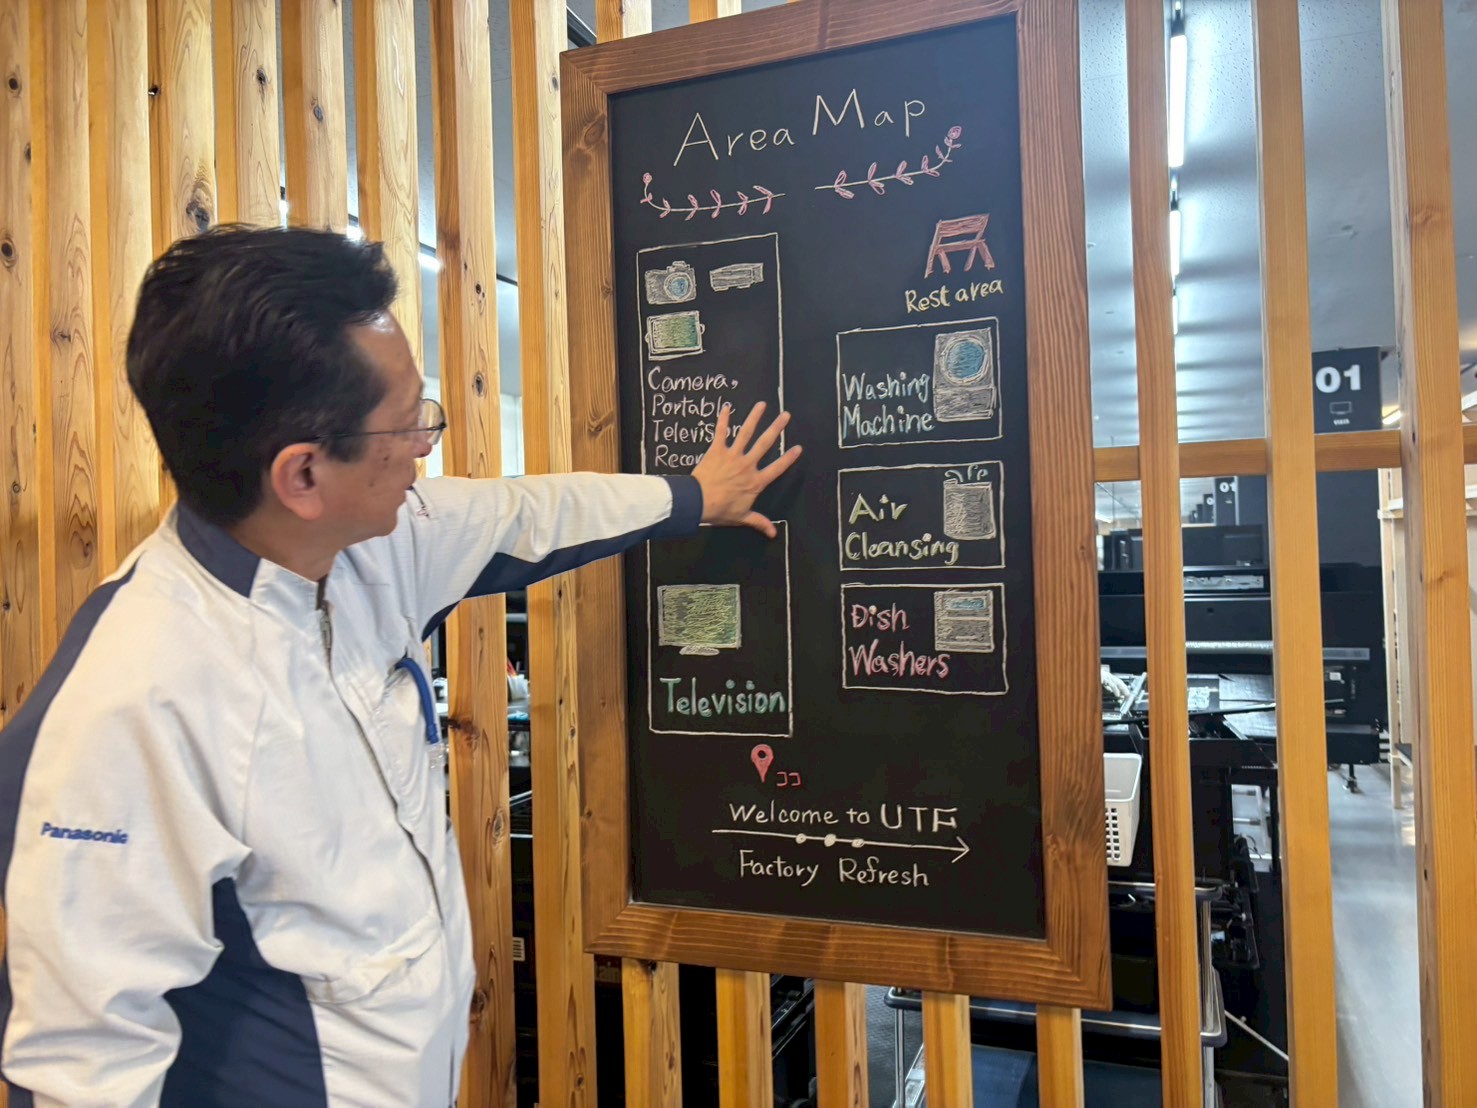 Area Map
Rest area
Camera,
Portable
Television
Washing
Machine
Air
Cleansing
Dish
Washers
Television
ココ
Welcome to UTF
Factory Refresh
Panasonic
01
01